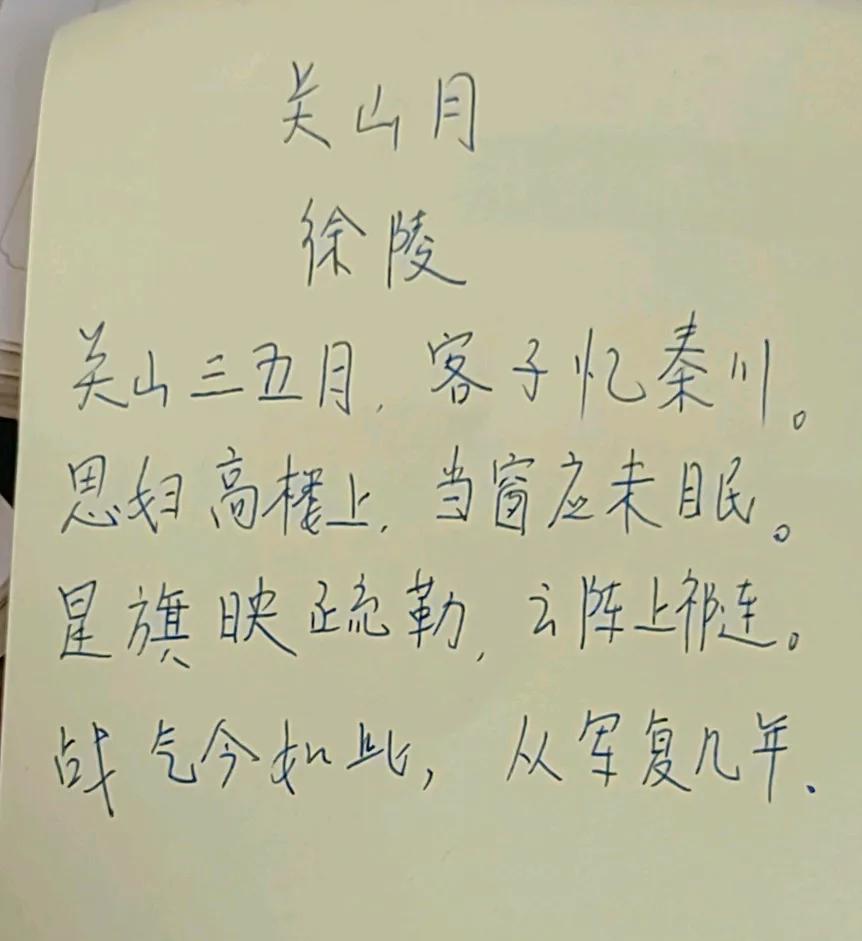 关山月
徐陵
关山三五月，客子忆秦川。
思妇高楼上，当窗应未眠。
星旗映疏勒，云阵上祁连。
战气今如此，从军复几年、